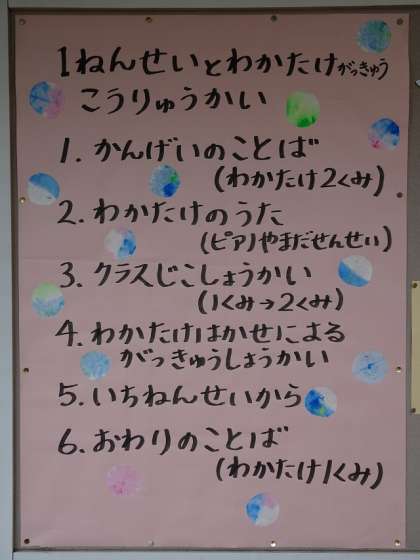 1ねんせいとわかたけがっきゅう
こうりゅうかい
1. かんげいのことば
(わかたけ2くみ)
2. わかたけのうた
(ピアノやまだせんせい)
3. クラスじこしょうかい
(1くみ→2くみ)
4. わかたけはかせによる
がっきゅうしょうかい
5. いちねんせいから
6. おわりのことば
(わかたけ1くみ)